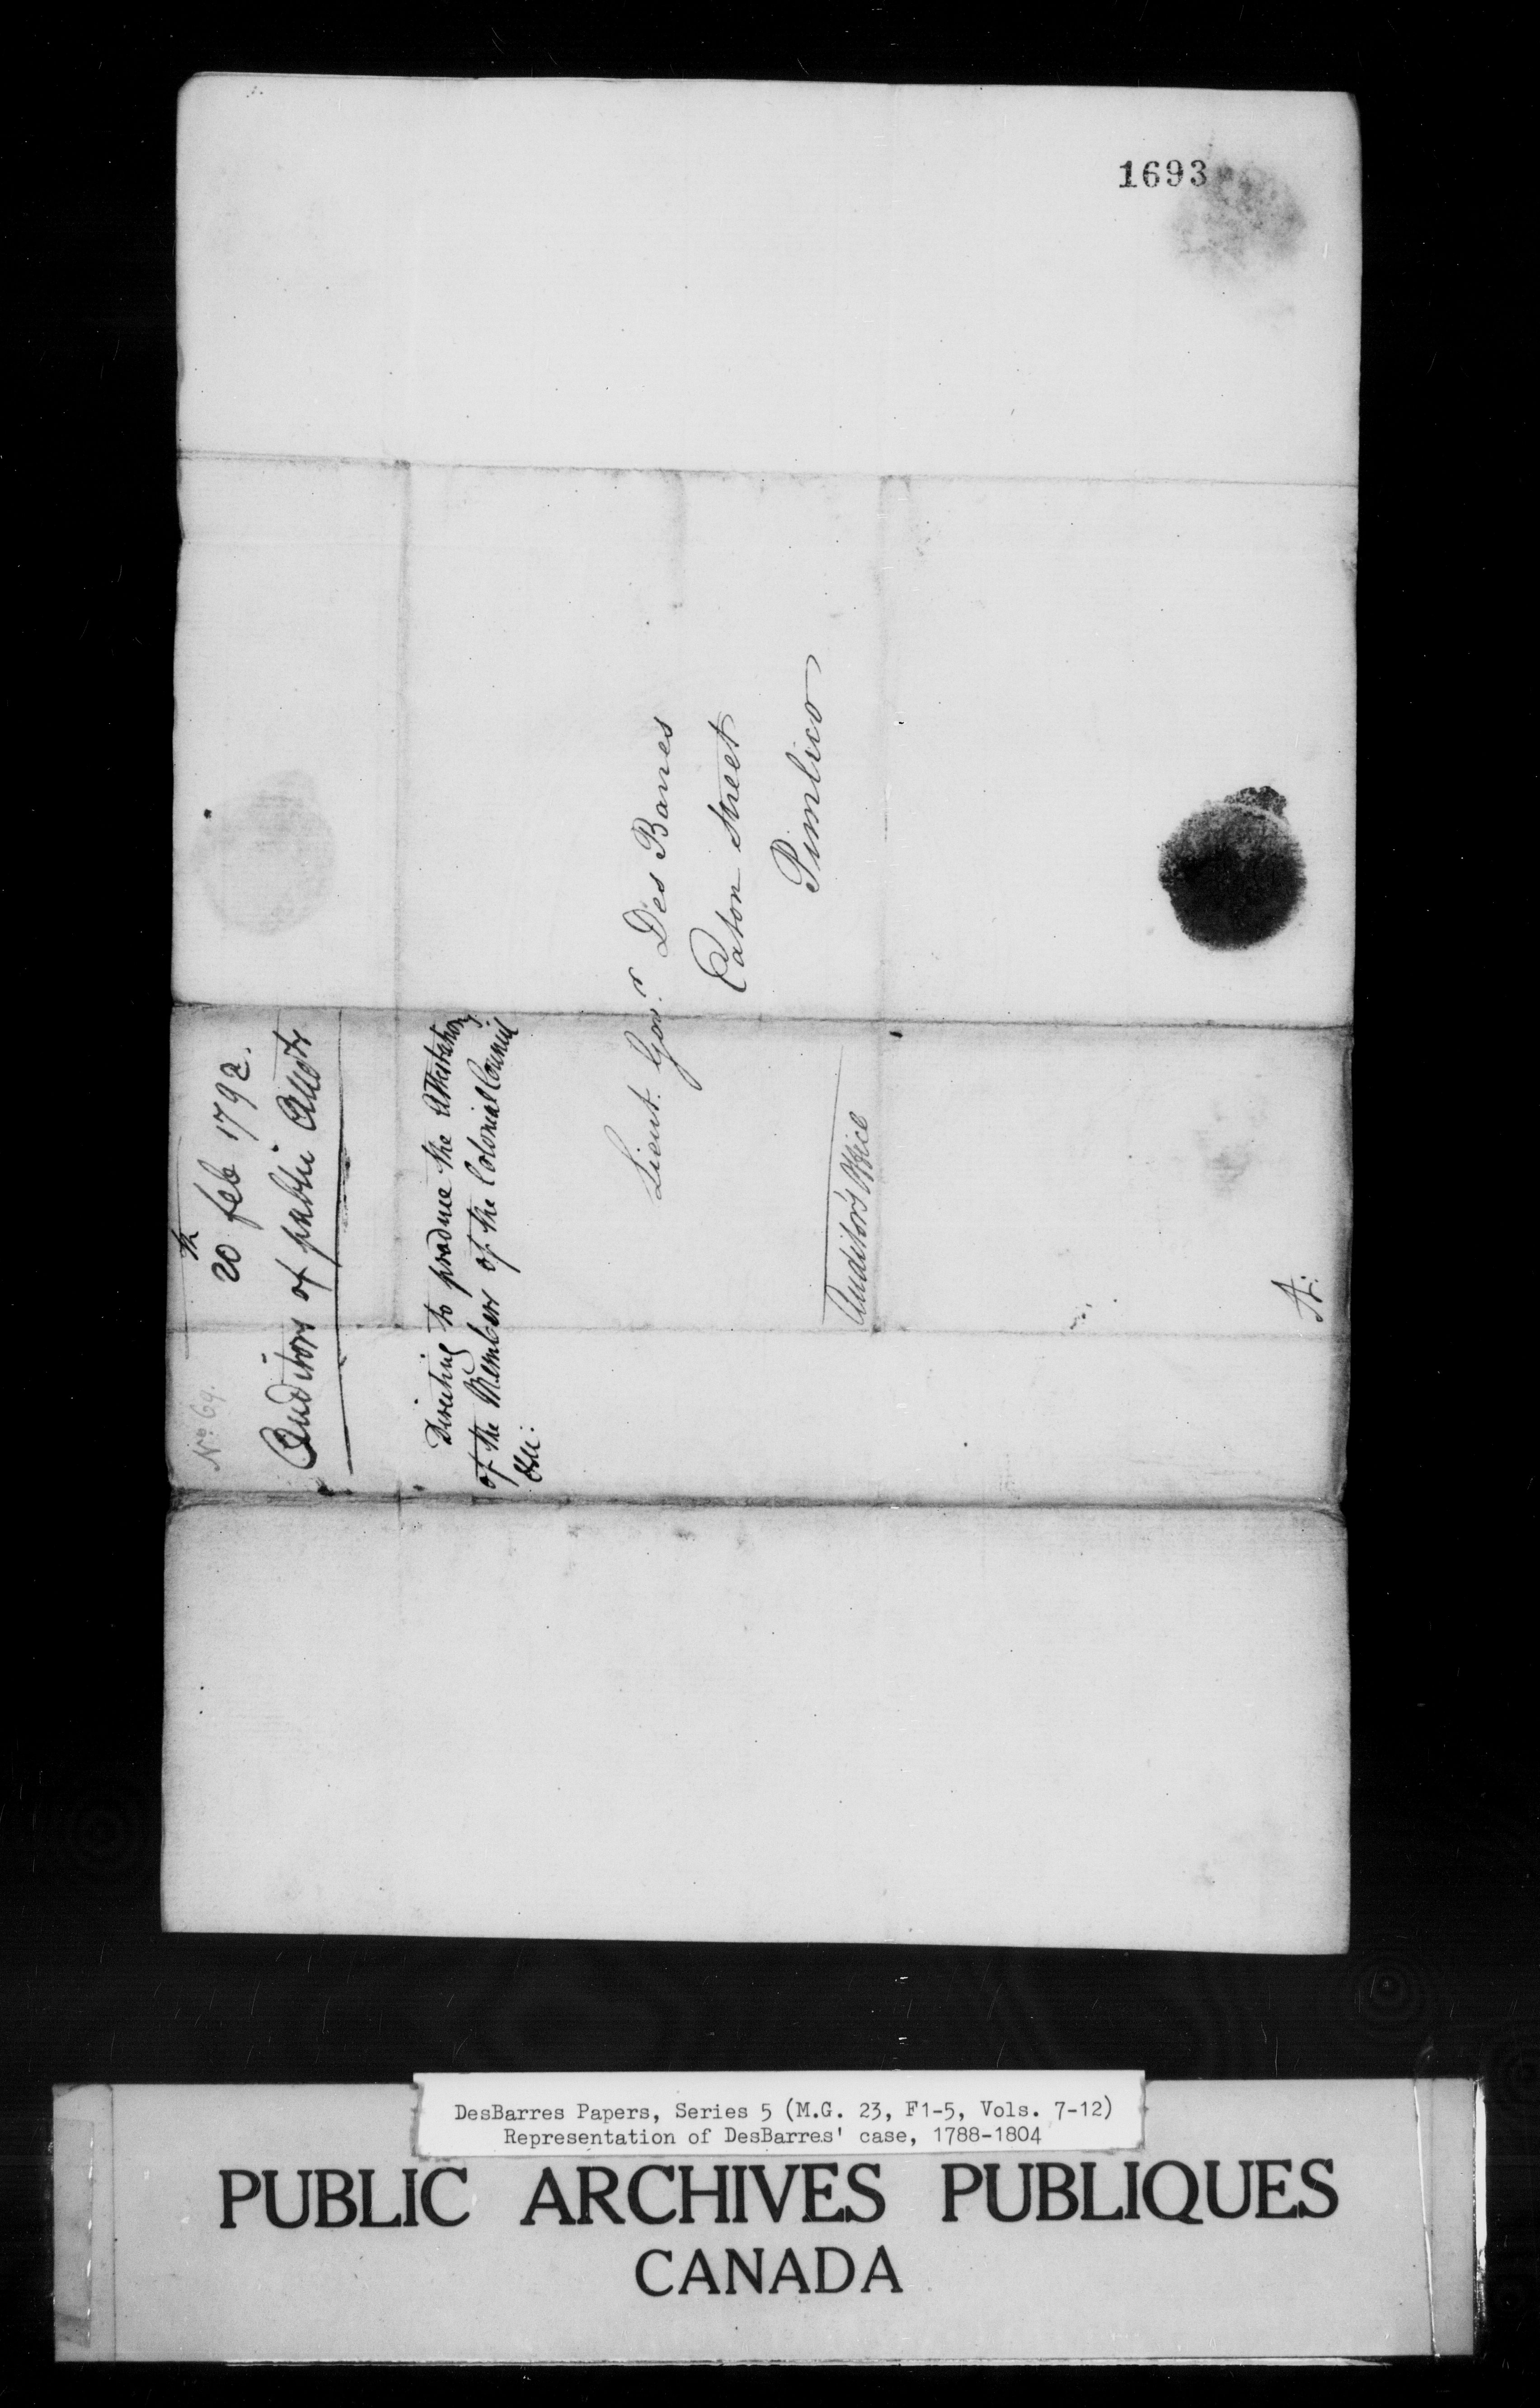 1693
No. 69.
20th feb 1792.
Auditors of public Accots
Directing to produce the Attestation
of the Members of the Colonial Council
&c:
Lieut. Govr. Des Barres
Eaton Street
Pimlico
Auditor's Office
A:
DesBarres Papers, Series 5 (M.G. 23, F1-5, Vols. 7-12)
Representation of DesBarres' case, 1788-1804
PUBLIC ARCHIVES PUBLIQUES
CANADA